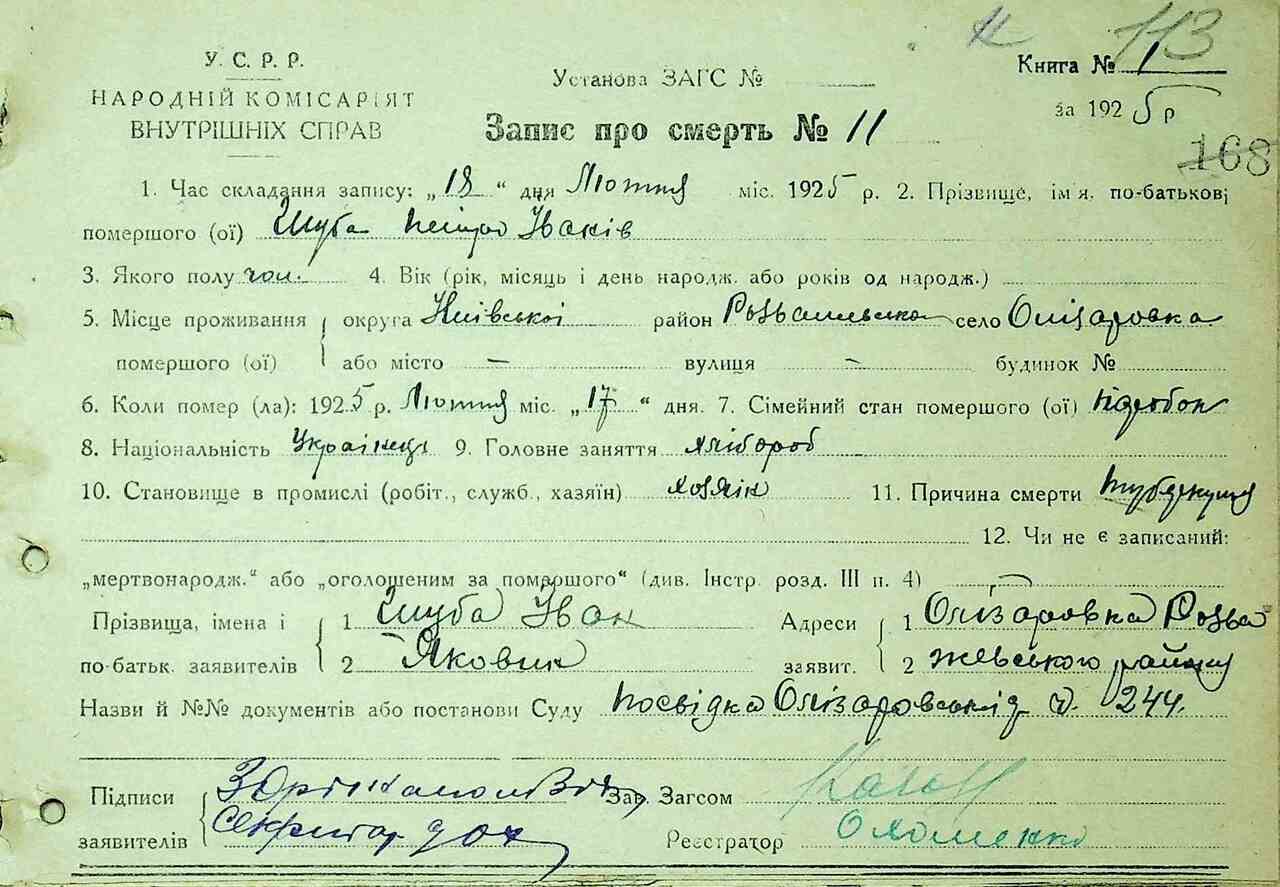 113
У. С. Р. Р.
НАРОДНІЙ КОМІСАРІЯТ
ВНУТРІШНІХ СПРАВ
Установа ЗАГС №
Книга № 1
за 1925 р
Запис про смерть № 11
168
1. Час складання запису: „18“ дня Лютня міс. 1925 р. 2. Прізвище, ім'я, по-батькові
помершого (ої) Шуба Петро Іванів
3. Якого полу чол. 4. Вік (рік, місяць і день народж. або років од народж.)
5. Місце проживання округа Київської район село Олізаровка
помершого (ої) або місто — вулиця — будинок №
6. Коли помер (ла): 1925 р. Лютня міс. „17“ дня. 7. Сімейний стан помершого (ої)
8. Національність Українець 9. Головне заняття хлібороб
10. Становище в промислі (робіт., служб., хазяїн) хозяін 11. Причина смерти
12. Чи не є записаний:
„мертвонародж.“ або „оголошеним за помершого“ (див. Інстр. розд. III п. 4) —
Прізвища, імена і 1 Шуба Іван Адреси 1 Олізаровка Розва
по-батьк. заявителів 2 Якович заявит. 2 жевського району
Назви й №№ документів або постанови Суду Посвідка 244.
Підписи Зав. Загсом
заявителів Реєстратор